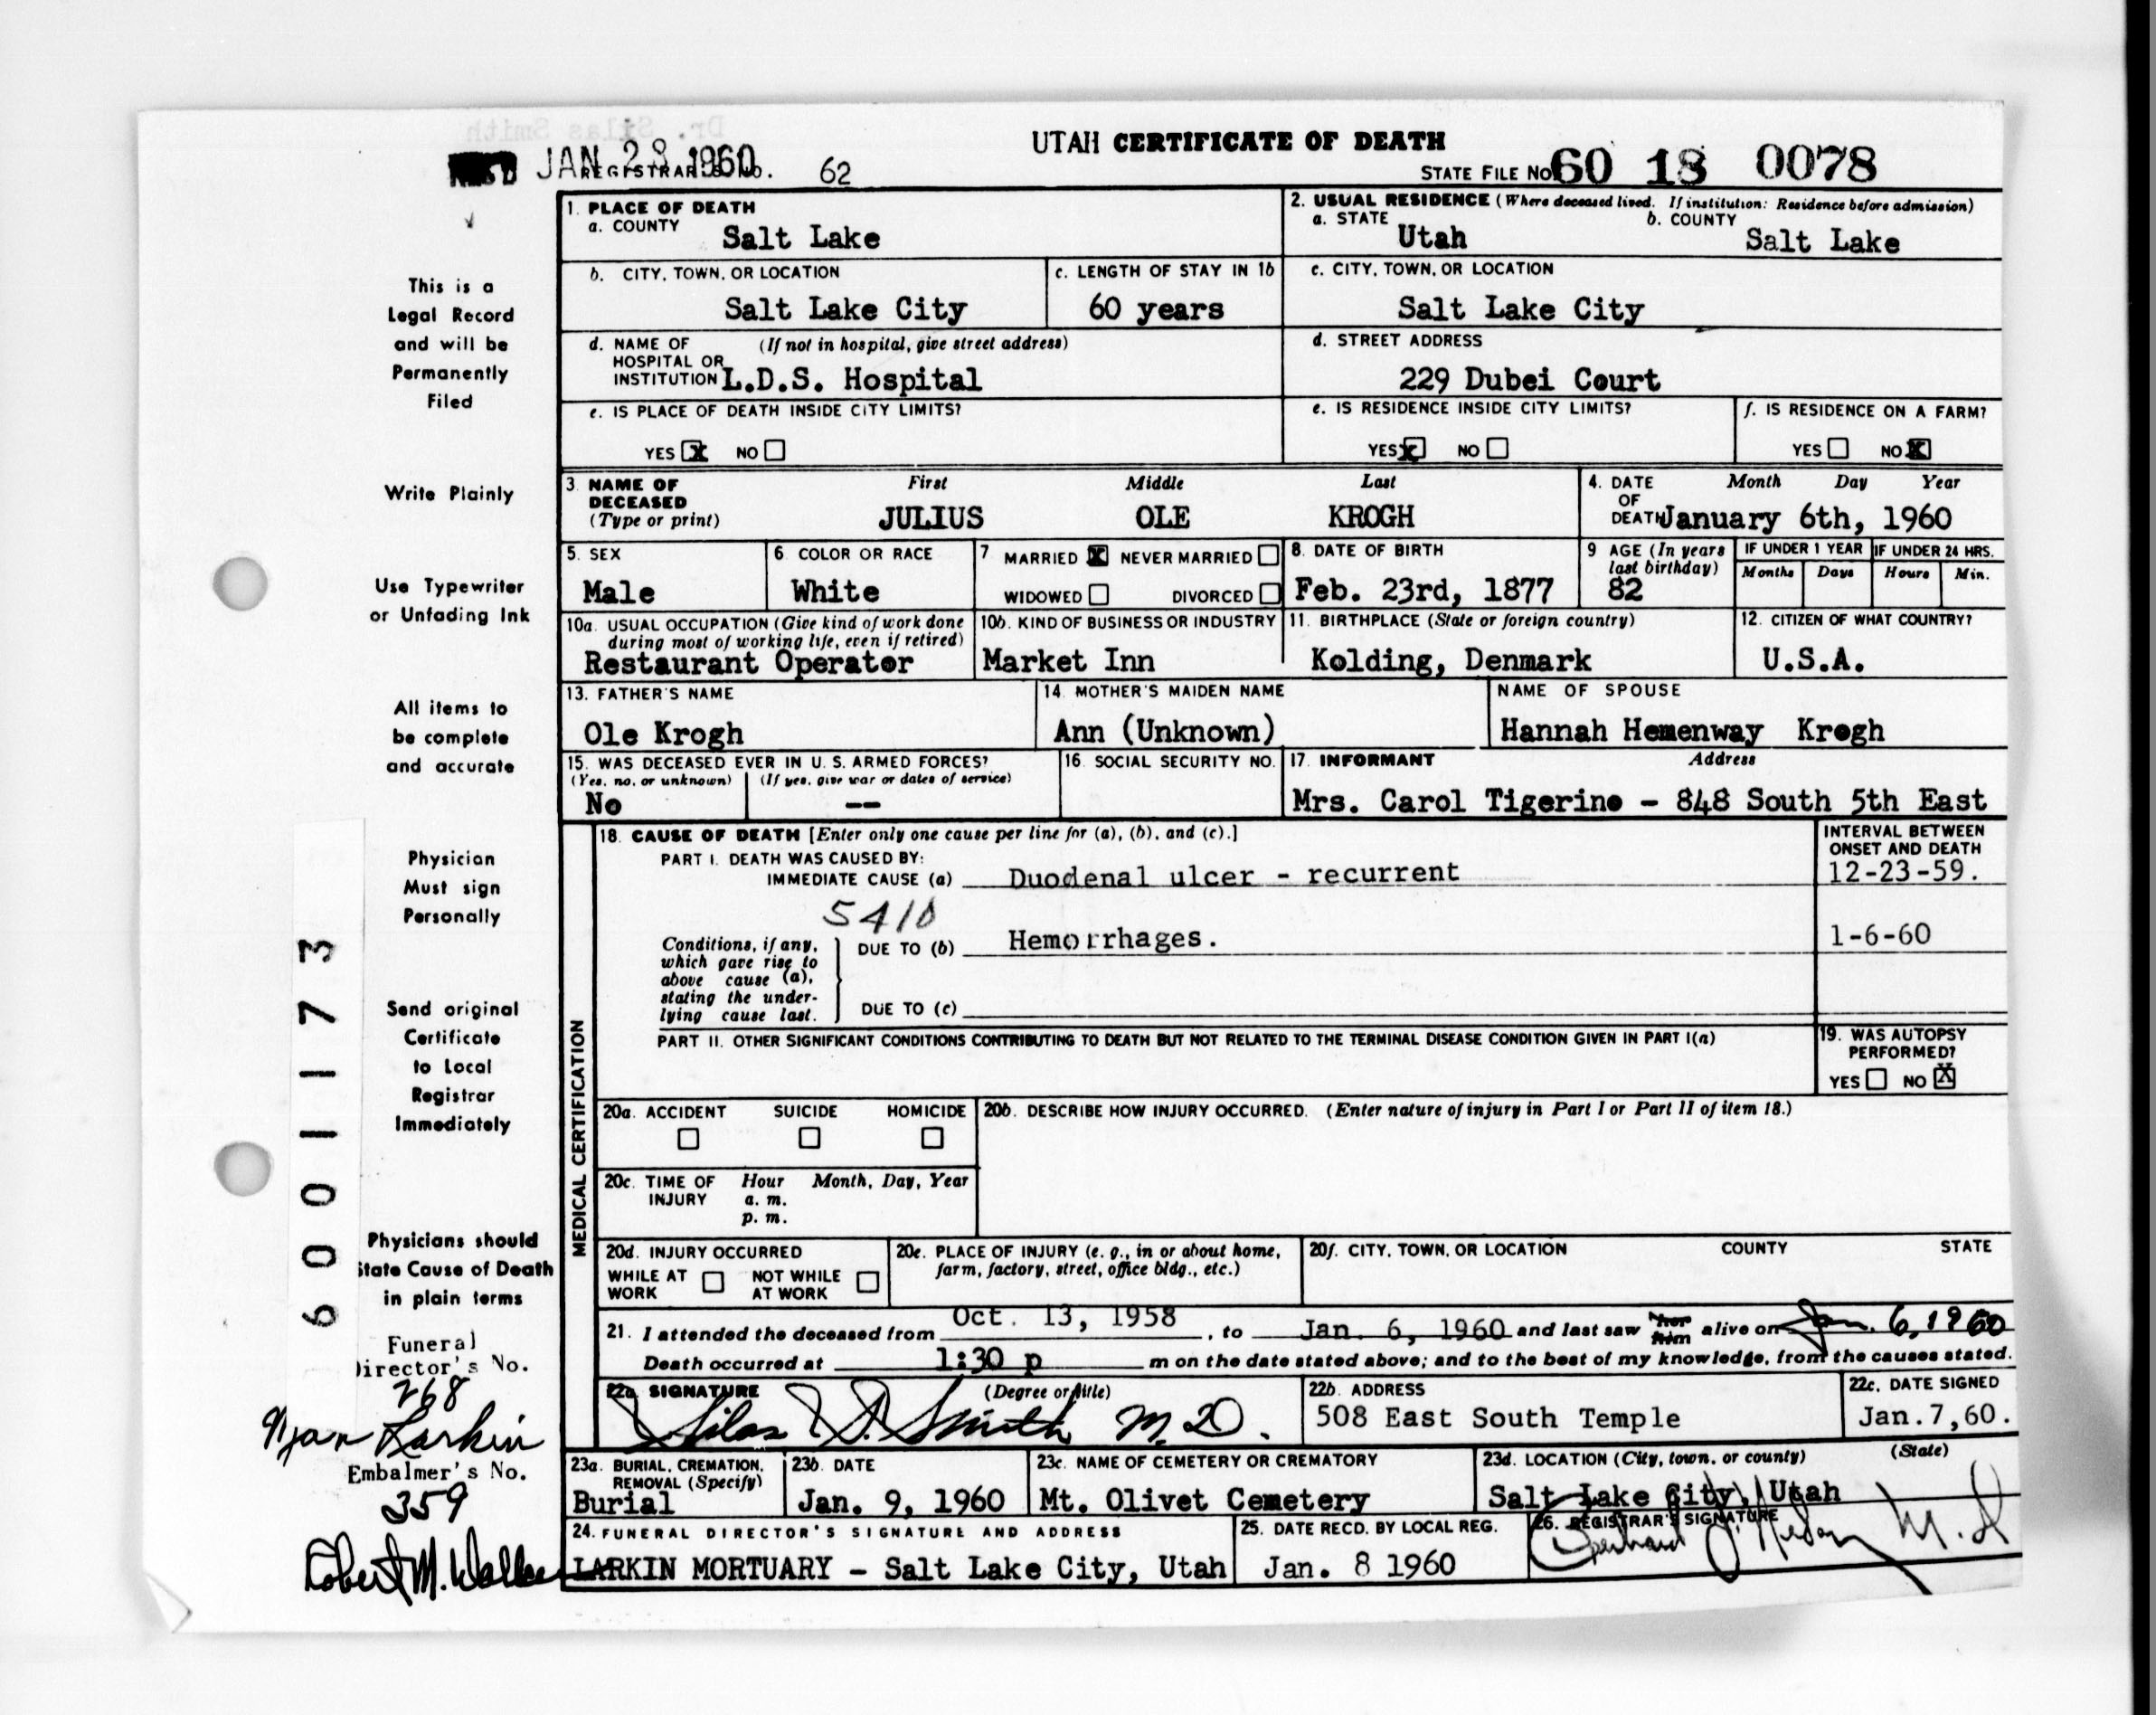 UTAH CERTIFICATE OF DEATH
REC'D JAN 28 1960
REGISTRAR'S NO. 62
STATE FILE NO. 60 18 0078
1. PLACE OF DEATH
a. COUNTY Salt Lake
2. USUAL RESIDENCE (Where deceased lived. If institution: Residence before admission)
a. STATE Utah b. COUNTY Salt Lake
b. CITY, TOWN, OR LOCATION Salt Lake City
c. LENGTH OF STAY IN 1b 60 years
c. CITY, TOWN, OR LOCATION Salt Lake City
d. NAME OF HOSPITAL OR INSTITUTION (If not in hospital, give street address) L.D.S. Hospital
d. STREET ADDRESS 229 Dubei Court
e. IS PLACE OF DEATH INSIDE CITY LIMITS? YES X NO
e. IS RESIDENCE INSIDE CITY LIMITS? YES X NO
f. IS RESIDENCE ON A FARM? YES NO X
3. NAME OF DECEASED (Type or print) First Middle Last
JULIUS OLE KROGH
4. DATE OF DEATH Month Day Year
January 6th, 1960
5. SEX Male
6. COLOR OR RACE White
7. MARRIED X NEVER MARRIED WIDOWED DIVORCED
8. DATE OF BIRTH Feb. 23rd, 1877
9. AGE (In years last birthday) 82
IF UNDER 1 YEAR Months Days
IF UNDER 24 HRS. Hours Min.
10a. USUAL OCCUPATION (Give kind of work done during most of working life, even if retired) Restaurant Operator
10b. KIND OF BUSINESS OR INDUSTRY Market Inn
11. BIRTHPLACE (State or foreign country) Kolding, Denmark
12. CITIZEN OF WHAT COUNTRY? U.S.A.
13. FATHER'S NAME Ole Krogh
14. MOTHER'S MAIDEN NAME Ann (Unknown)
NAME OF SPOUSE Hannah Hemenway Krogh
15. WAS DECEASED EVER IN U. S. ARMED FORCES? (Yes, no, or unknown) No
(If yes, give war or dates of service) --
16. SOCIAL SECURITY NO.
17. INFORMANT Address
Mrs. Carol Tigerino - 848 South 5th East
MEDICAL CERTIFICATION
18. CAUSE OF DEATH [Enter only one cause per line for (a), (b), and (c).]
INTERVAL BETWEEN ONSET AND DEATH
PART I. DEATH WAS CAUSED BY:
IMMEDIATE CAUSE (a) Duodenal ulcer - recurrent 12-23-59.
5410
Conditions, if any, which gave rise to above cause (a), stating the underlying cause last.
DUE TO (b) Hemorrhages. 1-6-60
DUE TO (c)
PART II. OTHER SIGNIFICANT CONDITIONS CONTRIBUTING TO DEATH BUT NOT RELATED TO THE TERMINAL DISEASE CONDITION GIVEN IN PART I(a)
19. WAS AUTOPSY PERFORMED? YES NO X
20a. ACCIDENT SUICIDE HOMICIDE
20b. DESCRIBE HOW INJURY OCCURRED. (Enter nature of injury in Part I or Part II of item 18.)
20c. TIME OF INJURY Hour a. m. p. m. Month, Day, Year
20d. INJURY OCCURRED WHILE AT WORK NOT WHILE AT WORK
20e. PLACE OF INJURY (e. g., in or about home, farm, factory, street, office bldg., etc.)
20f. CITY, TOWN, OR LOCATION COUNTY STATE
21. I attended the deceased from Oct. 13, 1958, to Jan. 6, 1960 and last saw her him alive on Jan. 6, 1960
Death occurred at 1:30 p m on the date stated above; and to the best of my knowledge, from the causes stated.
22a. SIGNATURE (Degree or title) Silas S. Smith M.D.
22b. ADDRESS 508 East South Temple
22c. DATE SIGNED Jan.7,60.
23a. BURIAL, CREMATION, REMOVAL (Specify) Burial
23b. DATE Jan. 9, 1960
23c. NAME OF CEMETERY OR CREMATORY Mt. Olivet Cemetery
23d. LOCATION (City, town, or county) (State) Salt Lake City, Utah
24. FUNERAL DIRECTOR'S SIGNATURE AND ADDRESS
LARKIN MORTUARY - Salt Lake City, Utah
25. DATE RECD. BY LOCAL REG. Jan. 8 1960
26. REGISTRAR'S SIGNATURE M.D
This is a
Legal Record
and will be
Permanently
Filed
Write Plainly
Use Typewriter
or Unfading Ink
All items to
be complete
and accurate
Physician
Must sign
Personally
Send original
Certificate
to Local
Registrar
Immediately
Physicians should
State Cause of Death
in plain terms
Funeral
Director's No.
268
Larkin
Embalmer's No.
359
Robert M.
6001173
Dr. Silas Smith